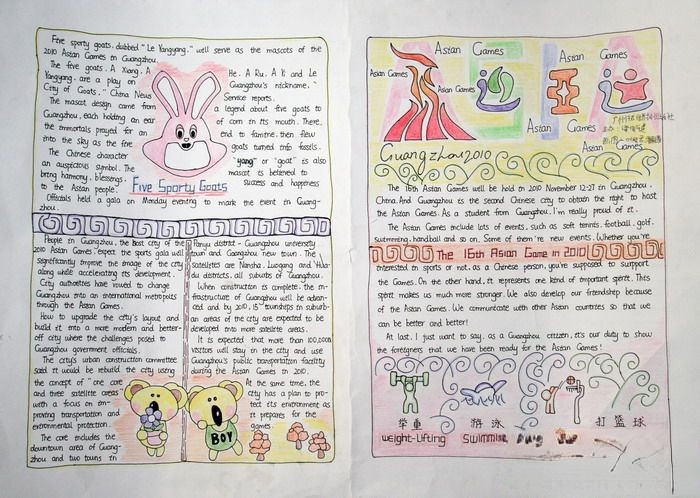 Five sporty goats, dubbed "Le Yangyang," well serve as the mascots of the
2010 Asian Games in Guangzhou.
The five goats, A Xiang, A
Yangyang, are a play on
City of Goats," China News
The mascot design came from
Guangzhou, each holding an ear
the immortals prayed for an
into the sky as the five
The Chinese character
an auspicious symbol. The
bring hamony, blessings
to the Asian people.
He, A Ru, A Yi and Le
Guangzhou's nickname, "
Service reports.
a legend about five goats to
of corn in its mouth. There,
end to famine, then flew
goats turned into fossils.
"yang" or "goat" is also
mascot is believed to
success and happiness
Five Sporty Goats
Officials held a gala on Monday evening to mark the event in Guang-
zhou.
People in Guangzhou, the Best city of the
2010 Asian Games, expect the sports gala will
significantly improve the image of the city
along while accelerating its development.
City authorities have vowed to change
Guangzhou into an international metropolis
through the Asian Games.
How to upgrade the city's layout and
build it into a more modern and better-
off city where the challenges posed to
Guangzhou government officials.
The city's urban construction committee
said it would be rebuild the city using
the concept of "one core
and three satelite areas"
with a focus on im-
proving transportation and
environmental protection.
The core includes the
downtown area of Guang-
zhou and two towns in
Panyu district - Guangzhou university
town and Guangzhou new town. The
satellites are Nansha, Luogang and Hua-
du districts, all suburbs of Guangzhou.
When construction is complete, the in-
frastructure of Guangzhou will be advan-
ced and by 2010, 15 townships in suburb-
an areas of the city are expected to be
developed into more satelite areas.
It is expected that more than 100,000
visitors will stay in the city and use
Guangzhou's public transportation facility
during the Asian Games in 2010.
At the same time, the
city has a plan to pro-
tect its environment as
it prepares for the
games.
BOY
ASIA
Asian Games
Asian Games
Asian Games
Asian Games
Asian Games
Asian Games
Guangzhou 2010
The 16th Asian Games will be hold in 2010 November 12-27 in Guangzhou,
China. And Guangzhou is the second Chinese city to obtain the right to host
the Asian Games. As a student from Guangzhou, I'm really proud of it.
The Asian Games include lots of events, such as soft tennis, football, golf,
swimming, handball and so on. Some of them're new events. Whether you're
The 16th Asian Game in 2010
interested in sports or not, as a Chinese person, you're supposed to support
the Games. On the other hand, it represents one kind of important spirit. This
spirit makes us much more stronger. We also develop our friendship because
of the Asian Games. We communicate with other Asian countries so that we
can be better and better!
At last, I just want to say, as a Guangzhou citizen, it's our duty to show
the foreigners that we have been ready for the Asian Games!
举重 游泳 打篮球
weight-lifting swimming